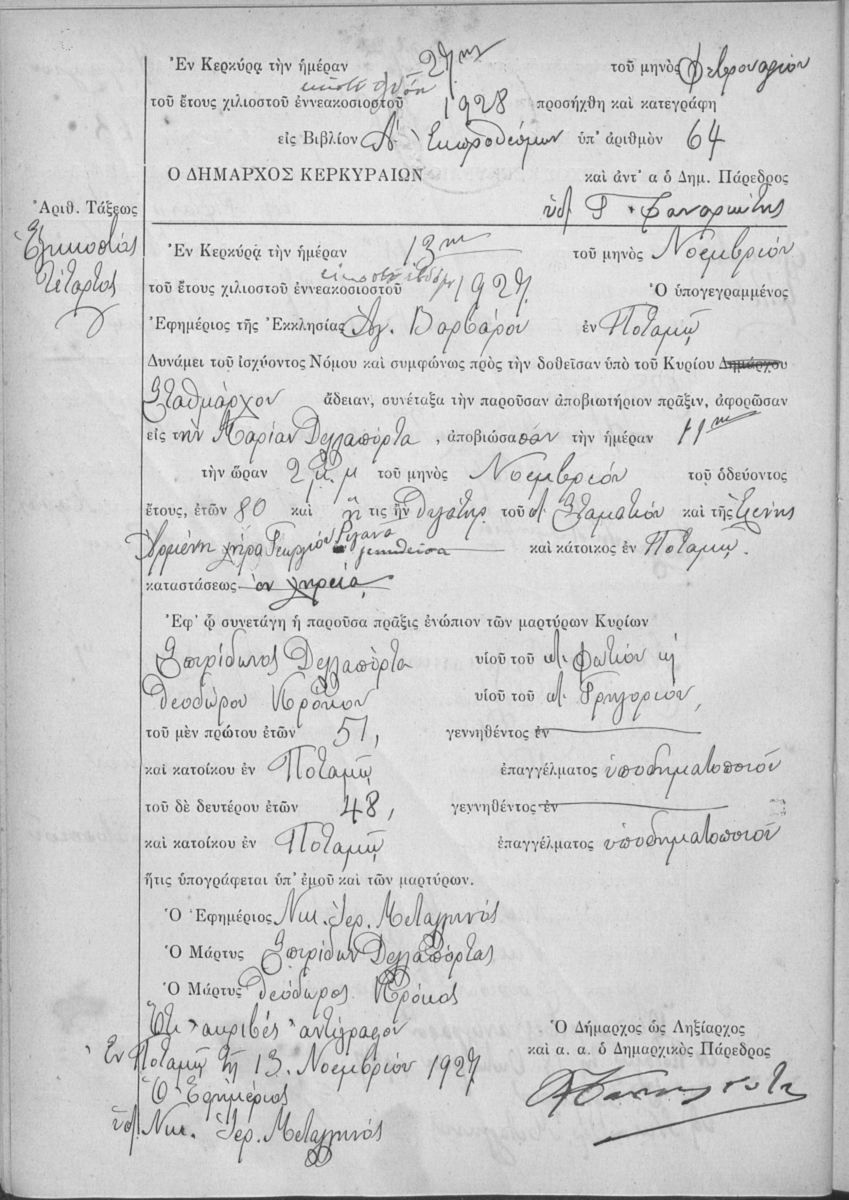 Ἐν Κερκύρᾳ τὴν ἡμέραν 27ην τοῦ μηνὸς Φεβρουαρίου
εἰκοστ ὀγδόη
τοῦ ἔτους χιλιοστοῦ ἐννεακοσιοστοῦ 1928 προσήχθη καὶ κατεγράφη
εἰς Βιβλίον Α' Ἐκπροθέσμων ὑπ' ἀριθμὸν 64
Ο ΔΗΜΑΡΧΟΣ ΚΕΡΚΥΡΑΙΩΝ καὶ ἀντ' α ὁ Δημ. Πάρεδρος
ὑπ. Γ.
Ἀριθ. Τάξεως
Εἰκοστὸς
τέταρτος
Ἐν Κερκύρᾳ τὴν ἡμέραν 13ην τοῦ μηνὸς Νοεμβρίου
εἰκοστ ἑβδόμ
τοῦ ἔτους χιλιοστοῦ ἐννεακοσιοστοῦ 1927. Ὁ ὑπογεγραμμένος
Ἐφημέριος τῆς Ἐκκλησίας Ἁγ. Βαρβάρου ἐν Ποταμῷ
Δυνάμει τοῦ ἰσχύοντος Νόμου καὶ συμφώνως πρὸς τὴν δοθεῖσαν ὑπὸ τοῦ Κυρίου Δημάρχου
Σταθμάρχου ἄδειαν, συνέταξα τὴν παροῦσαν ἀποβιωτήριον πρᾶξιν, ἀφορῶσαν
εἰς τὴν Μαρίαν Δελλαπόρτα, ἀποβιώσασαν τὴν ἡμέραν 11ην
τὴν ὥραν 2 μ.μ τοῦ μηνὸς Νοεμβρίου τοῦ ὁδεύοντος
ἔτους, ἐτῶν 80 καὶ ἥ τις ἦν θυγάτηρ τοῦ π. Σταματίου καὶ τῆς Ἑλένης
χήρα Γεωργίου Ριγανᾶ γεννηθεῖσα καὶ κάτοικος ἐν Ποταμῷ.
καταστάσεως ἐν χηρείᾳ
Ἐφ' ᾧ συνετάγη ἡ παροῦσα πρᾶξις ἐνώπιον τῶν μαρτύρων Κυρίων
Σπυρίδωνος Δελλαπόρτα υἱοῦ τοῦ π. Φωτίου κ
Θεοδώρου Κρόκου υἱοῦ τοῦ π. Γρηγορίου,
τοῦ μὲν πρώτου ἐτῶν 51, γεννηθέντος ἐν
καὶ κατοίκου ἐν Ποταμῷ ἐπαγγέλματος ὑποδηματοποιοῦ
τοῦ δὲ δευτέρου ἐτῶν 48, γεννηθέντος ἐν
καὶ κατοίκου ἐν Ποταμῷ ἐπαγγέλματος ὑποδηματοποιοῦ
ἥτις ὑπογράφεται ὑπ' ἐμοῦ καὶ τῶν μαρτύρων.
Ὁ Ἐφημέριος Νικ. Ἱερ. Μεταλληνός
Ὁ Μάρτυς Σπυρίδων Δελλαπόρτας
Ὁ Μάρτυς Θεόδωρος Κρόκος
Ὅτι ἀκριβὲς ἀντίγραφον
Ἐν Ποταμῷ τῇ 13 Νοεμβρίου 1927
Ὁ Ἐφημέριος
ὑπ. Νικ. Ἱερ. Μεταλληνός
Ὁ Δήμαρχος ὡς Ληξίαρχος
καὶ α. α. ὁ Δημαρχικὸς Πάρεδρος